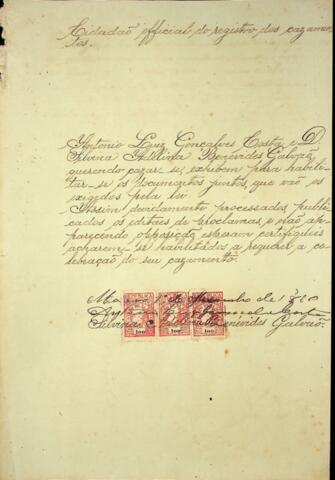 Cidadão official do registro dos cazamen-
tos.
Antonio Luiz Gonçalves Costa e D.
Silvina Adelina Benevides Galvão,
querendo cazar-se, exhibem para habili-
tar-se os documentos juntos, que são os
exigidos pela lei.
Assim devidamente processados, publi-
cados os editaes de proclamas, e não ap-
parecendo opposição, esperam certifiqueis
acharem-se habilitados a requerer a ce-
lebração do seu cazamento.
de 1
Silvina Adelina Benevides Galvão.
100 100 100